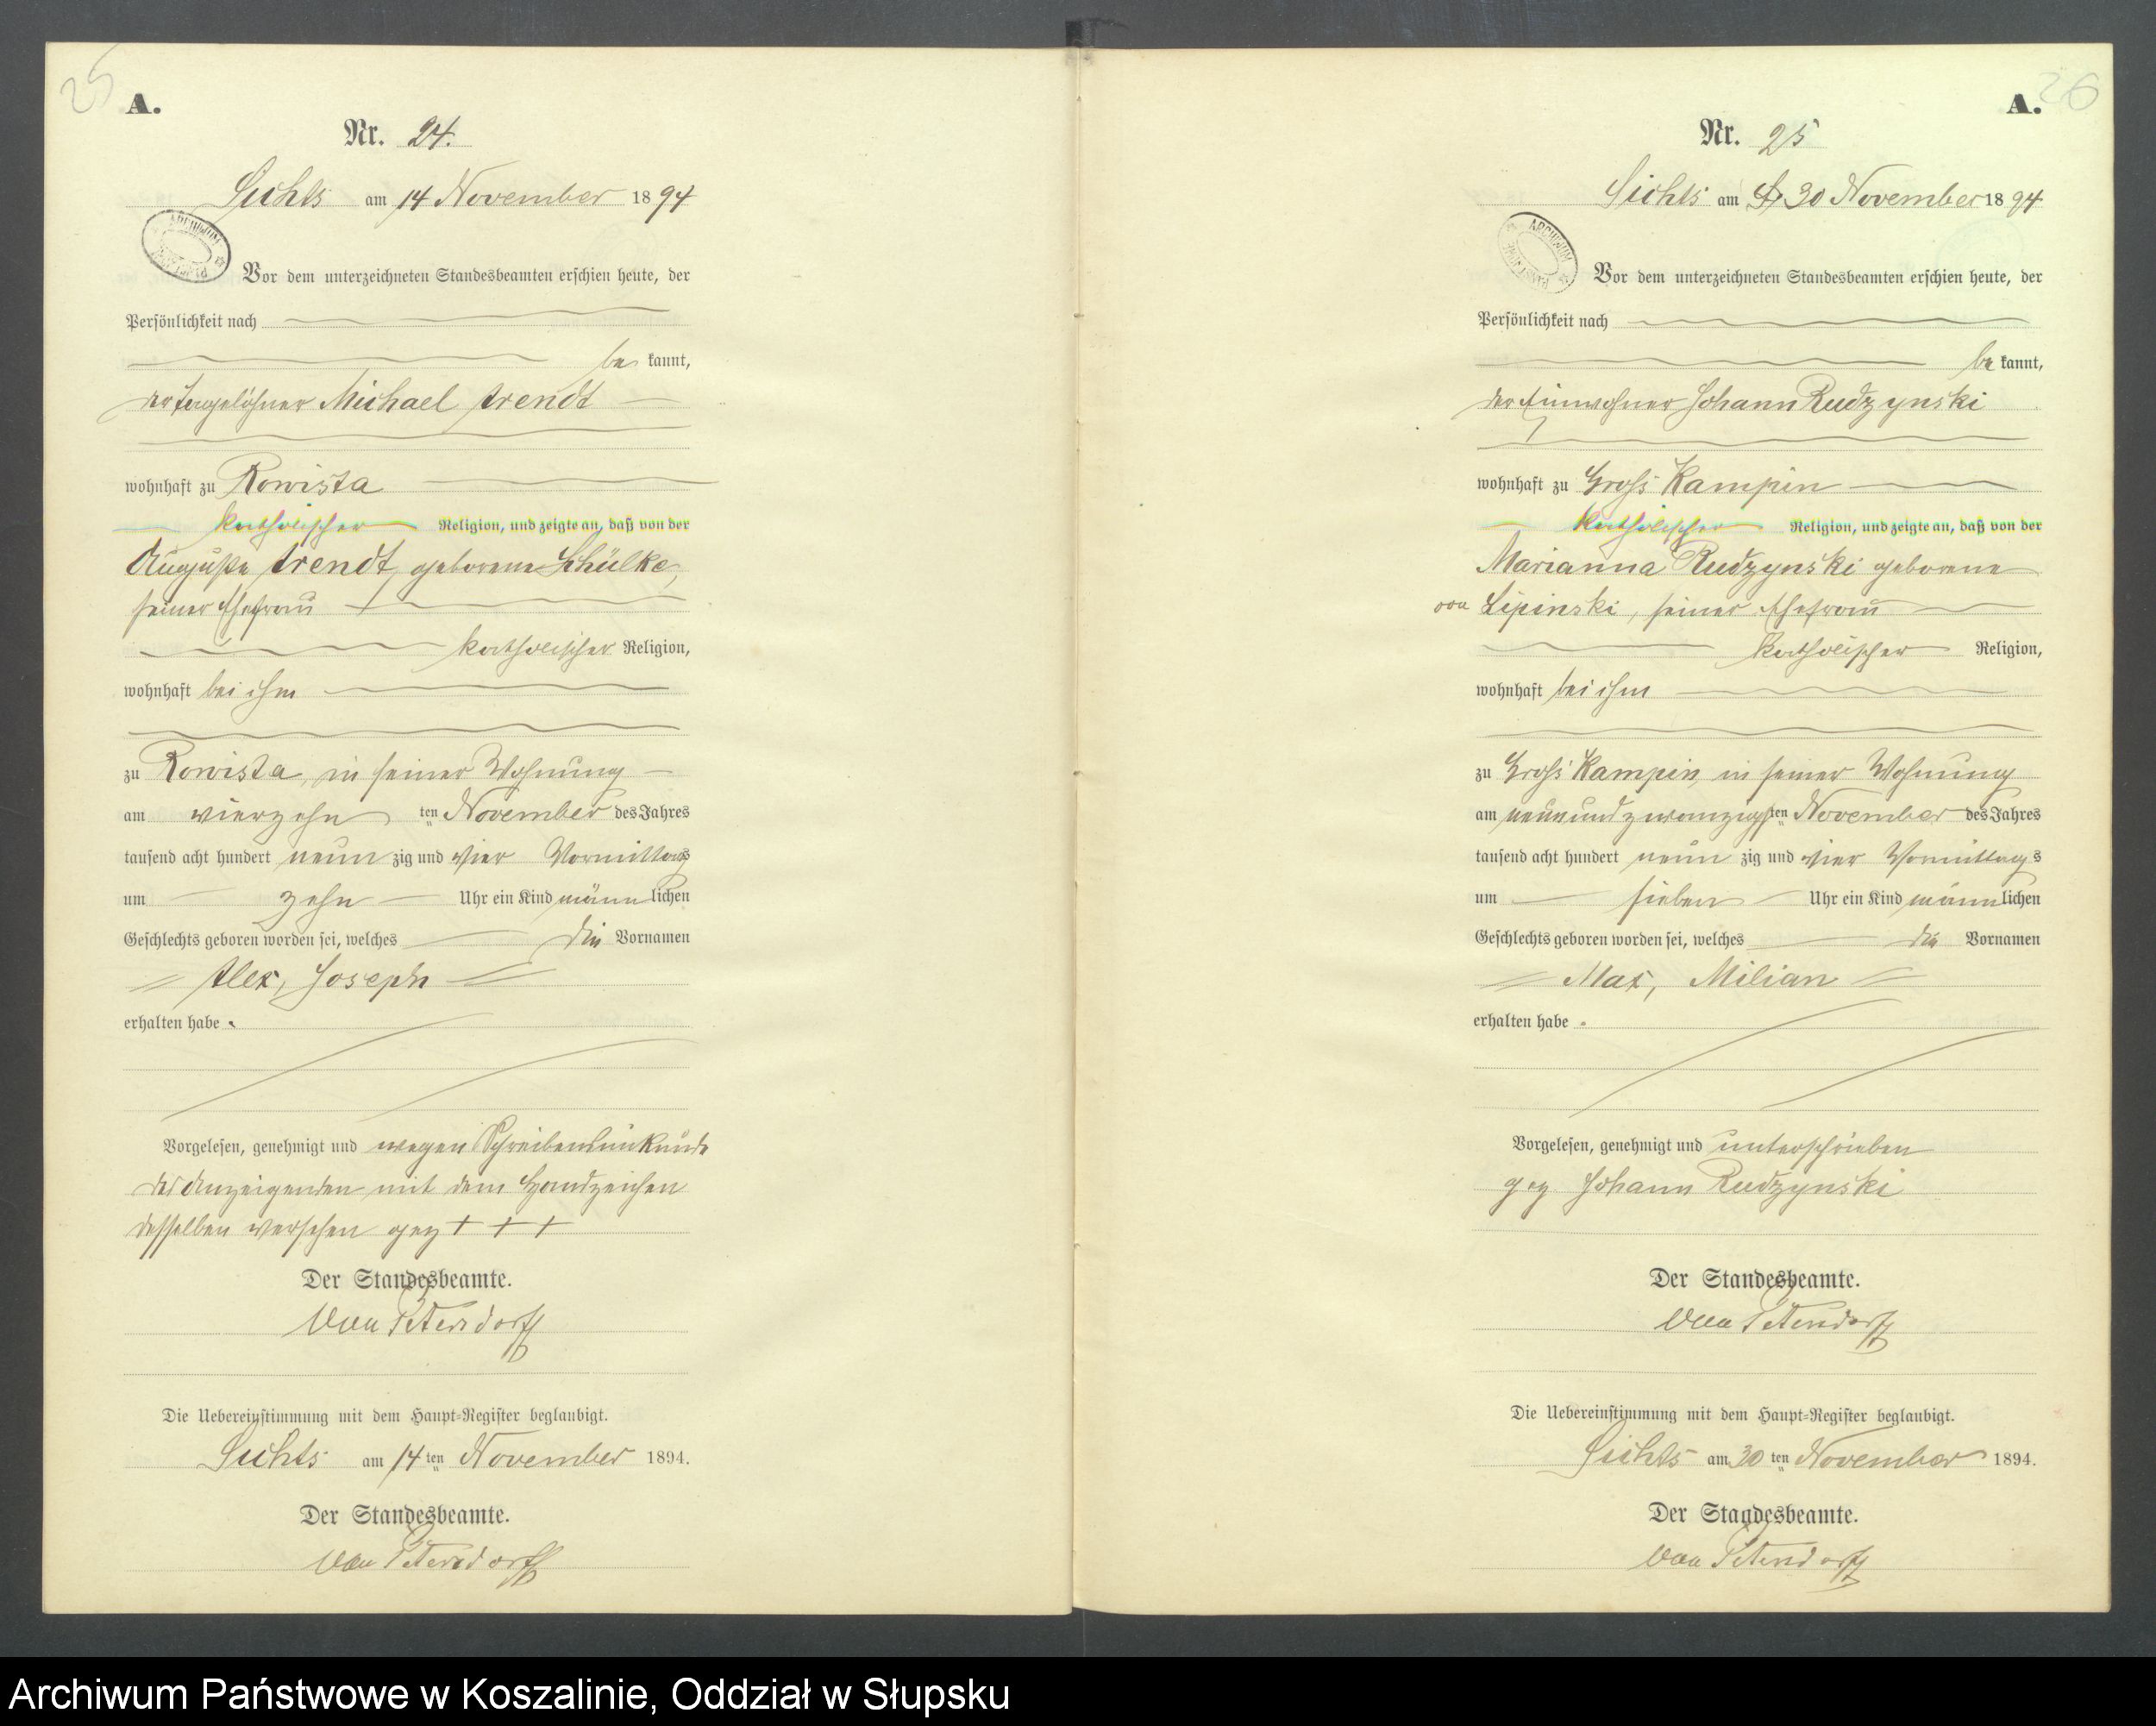 25
A.
Nr. 24.
Sichts am 14 November 1894
ARCHIWUM PAŃSTWOWE
Vor dem unterzeichneten Standesbeamten erschien heute, der
Persönlichkeit nach
be kannt,
der Tagelöhner Michael Arendt
wohnhaft zu Rowista
katholischer Religion, und zeigte an, daß von der
Auguste Arendt, geborene Schülke,
seiner Ehefrau
katholischer Religion,
wohnhaft bei ihm
zu Rowista, in seiner Wohnung
am vierzehn ten November des Jahres
tausend acht hundert neun zig und vier Vormittags
um zehn Uhr ein Kind männlichen
Geschlechts geboren worden sei, welches die Vornamen
Alex, Joseph
erhalten habe.
Vorgelesen, genehmigt und wegen Schreibensunkunde
des Anzeigenden mit dem Handzeichen
desselben versehen gez + + +
Der Standesbeamte.
von Petersdorff
Die Uebereinstimmung mit dem Haupt=Register beglaubigt.
Sichts am 14 ten November 1894.
Der Standesbeamte.
von Petersdorff
26
A.
Nr. 25
Sichts am 30 November 1894
ARCHIWUM PAŃSTWOWE
Vor dem unterzeichneten Standesbeamten erschien heute, der
Persönlichkeit nach
be kannt,
der Einwohner Johann Rudzynski
wohnhaft zu Groß Kampin
katholischer Religion, und zeigte an, daß von der
Marianna Rudzynski geborene
von Lipinski, seiner Ehefrau
katholischer Religion,
wohnhaft bei ihm
zu Groß Kampin, in seiner Wohnung
am neunundzwanzigsten November des Jahres
tausend acht hundert neun zig und vier Vormittags
um sieben Uhr ein Kind männlichen
Geschlechts geboren worden sei, welches die Vornamen
Max, Milian
erhalten habe.
Vorgelesen, genehmigt und unterschrieben
gez Johann Rudzynski
Der Standesbeamte.
von Petersdorff
Die Uebereinstimmung mit dem Haupt=Register beglaubigt.
Sichts am 30 ten November 1894.
Der Standesbeamte.
von Petersdorff
Archiwum Państwowe w Koszalinie, Oddział w Słupsku